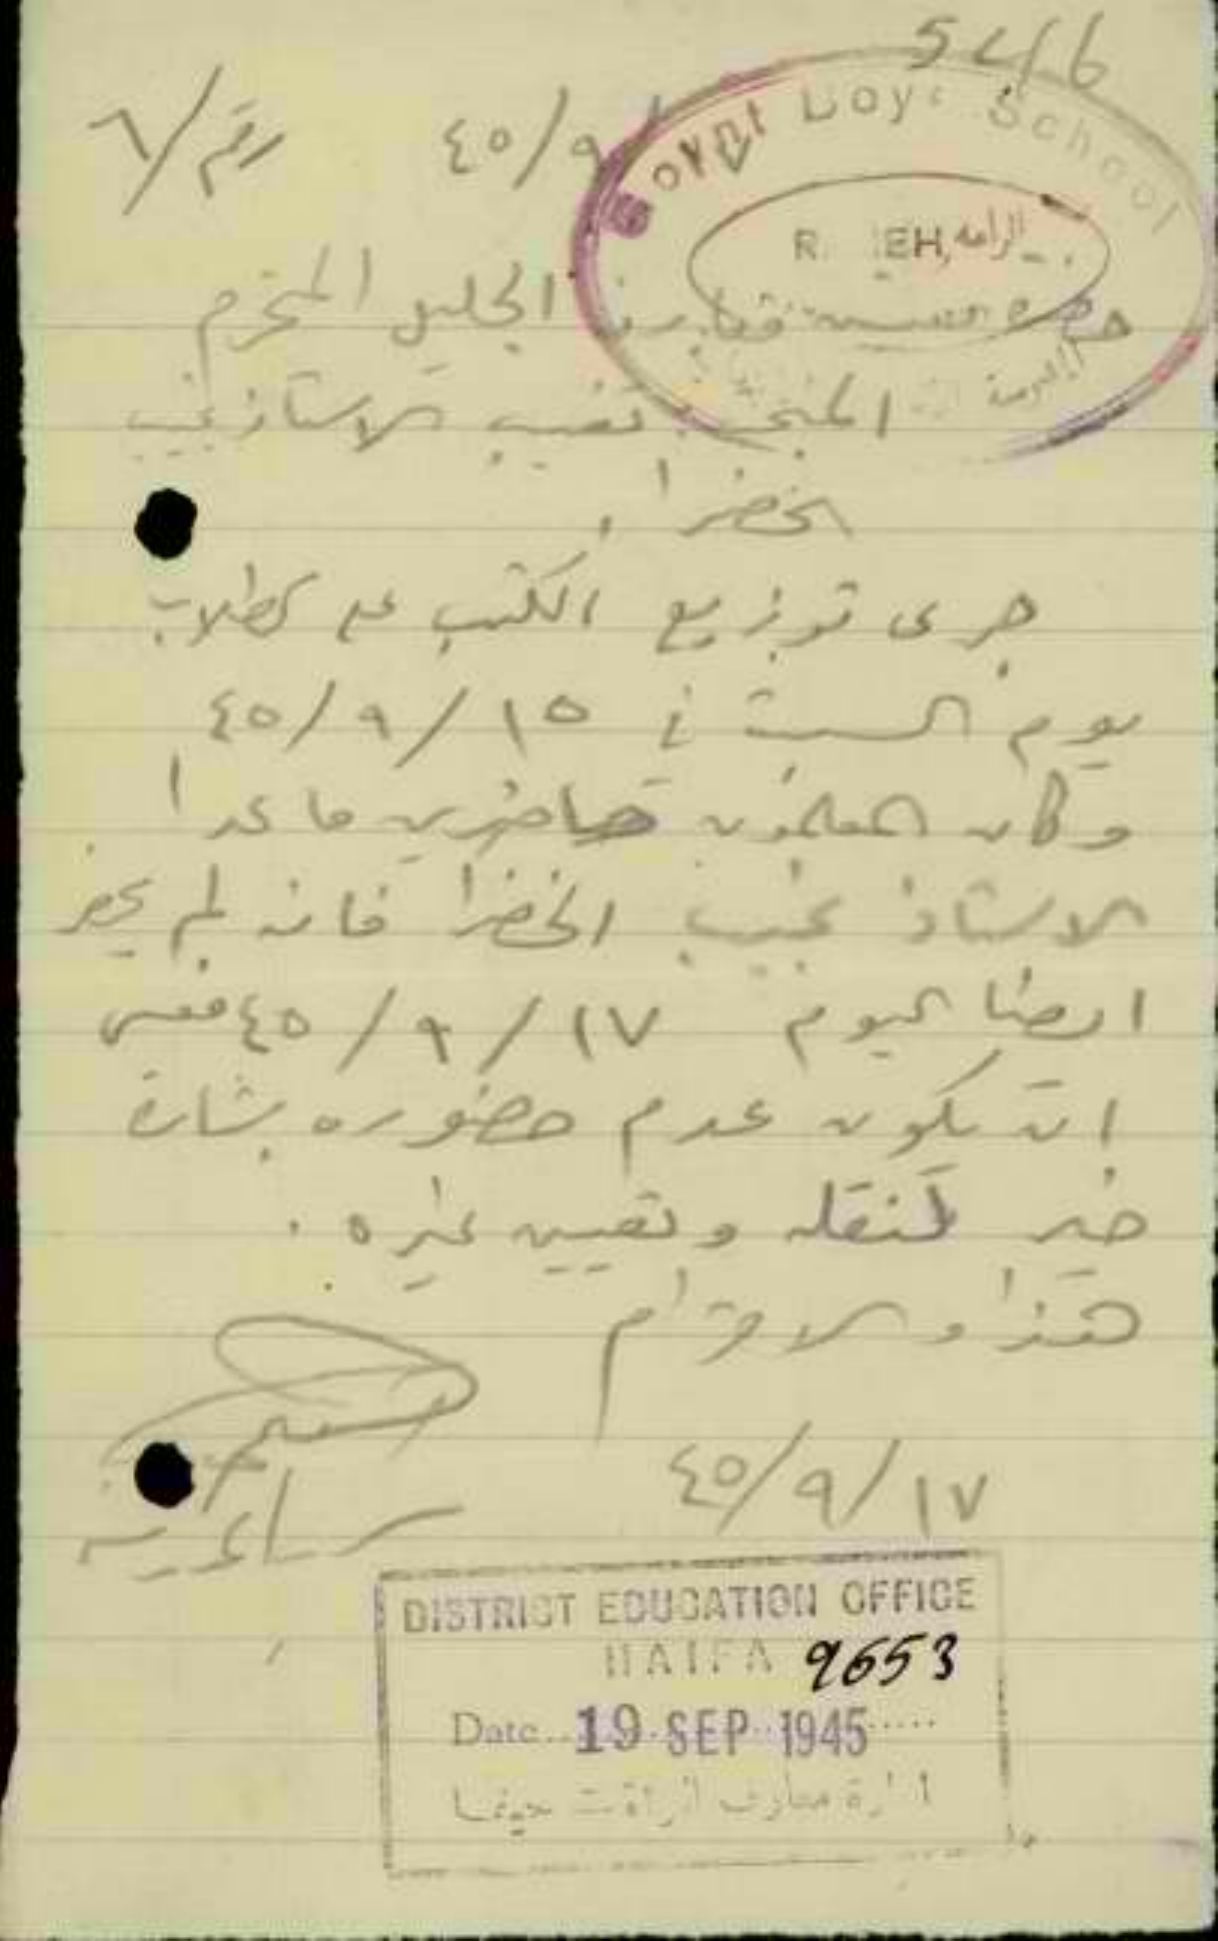 54/6
رقم/٦ ٤٥/٩/
Govnt Boys School
R EH, الرامه
حضرة مفتش معارف الجليل المحترم
تغيب الاستاذ نجيب
الخضرا
جرى توزيع الكتب على الطلاب
يوم السبت في ٤٥/٩/١٥
وكان المعلمون حاضرين ما عدا
الاستاذ نجيب الخضرا فانه لم يحضر
ايضا اليوم ٤٥/٩/١٧ فعسى
ان يكون عدم حضوره بشارة
خير لنقله وتعيين غيره .
هذا والاحترام
٤٥/٩/١٧
DISTRICT EDUCATION OFFICE
HAIFA 9653
Date 19 SEP 1945
ادارة معارف لواء حيفا